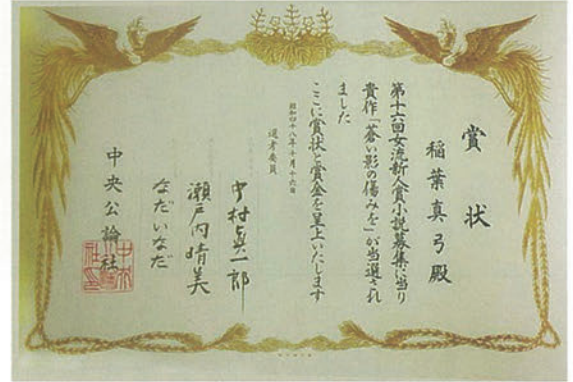 賞状
稲葉真弓殿
第十六回女流新人賞小説募集に当り
貴作「蒼い影の傷みを」が当選され
ました
ここに賞状と賞金を呈上いたします
昭和四十八年十月十六日
選考委員
中村真一郎
瀬戸内晴美
なだいなだ
中央公論社